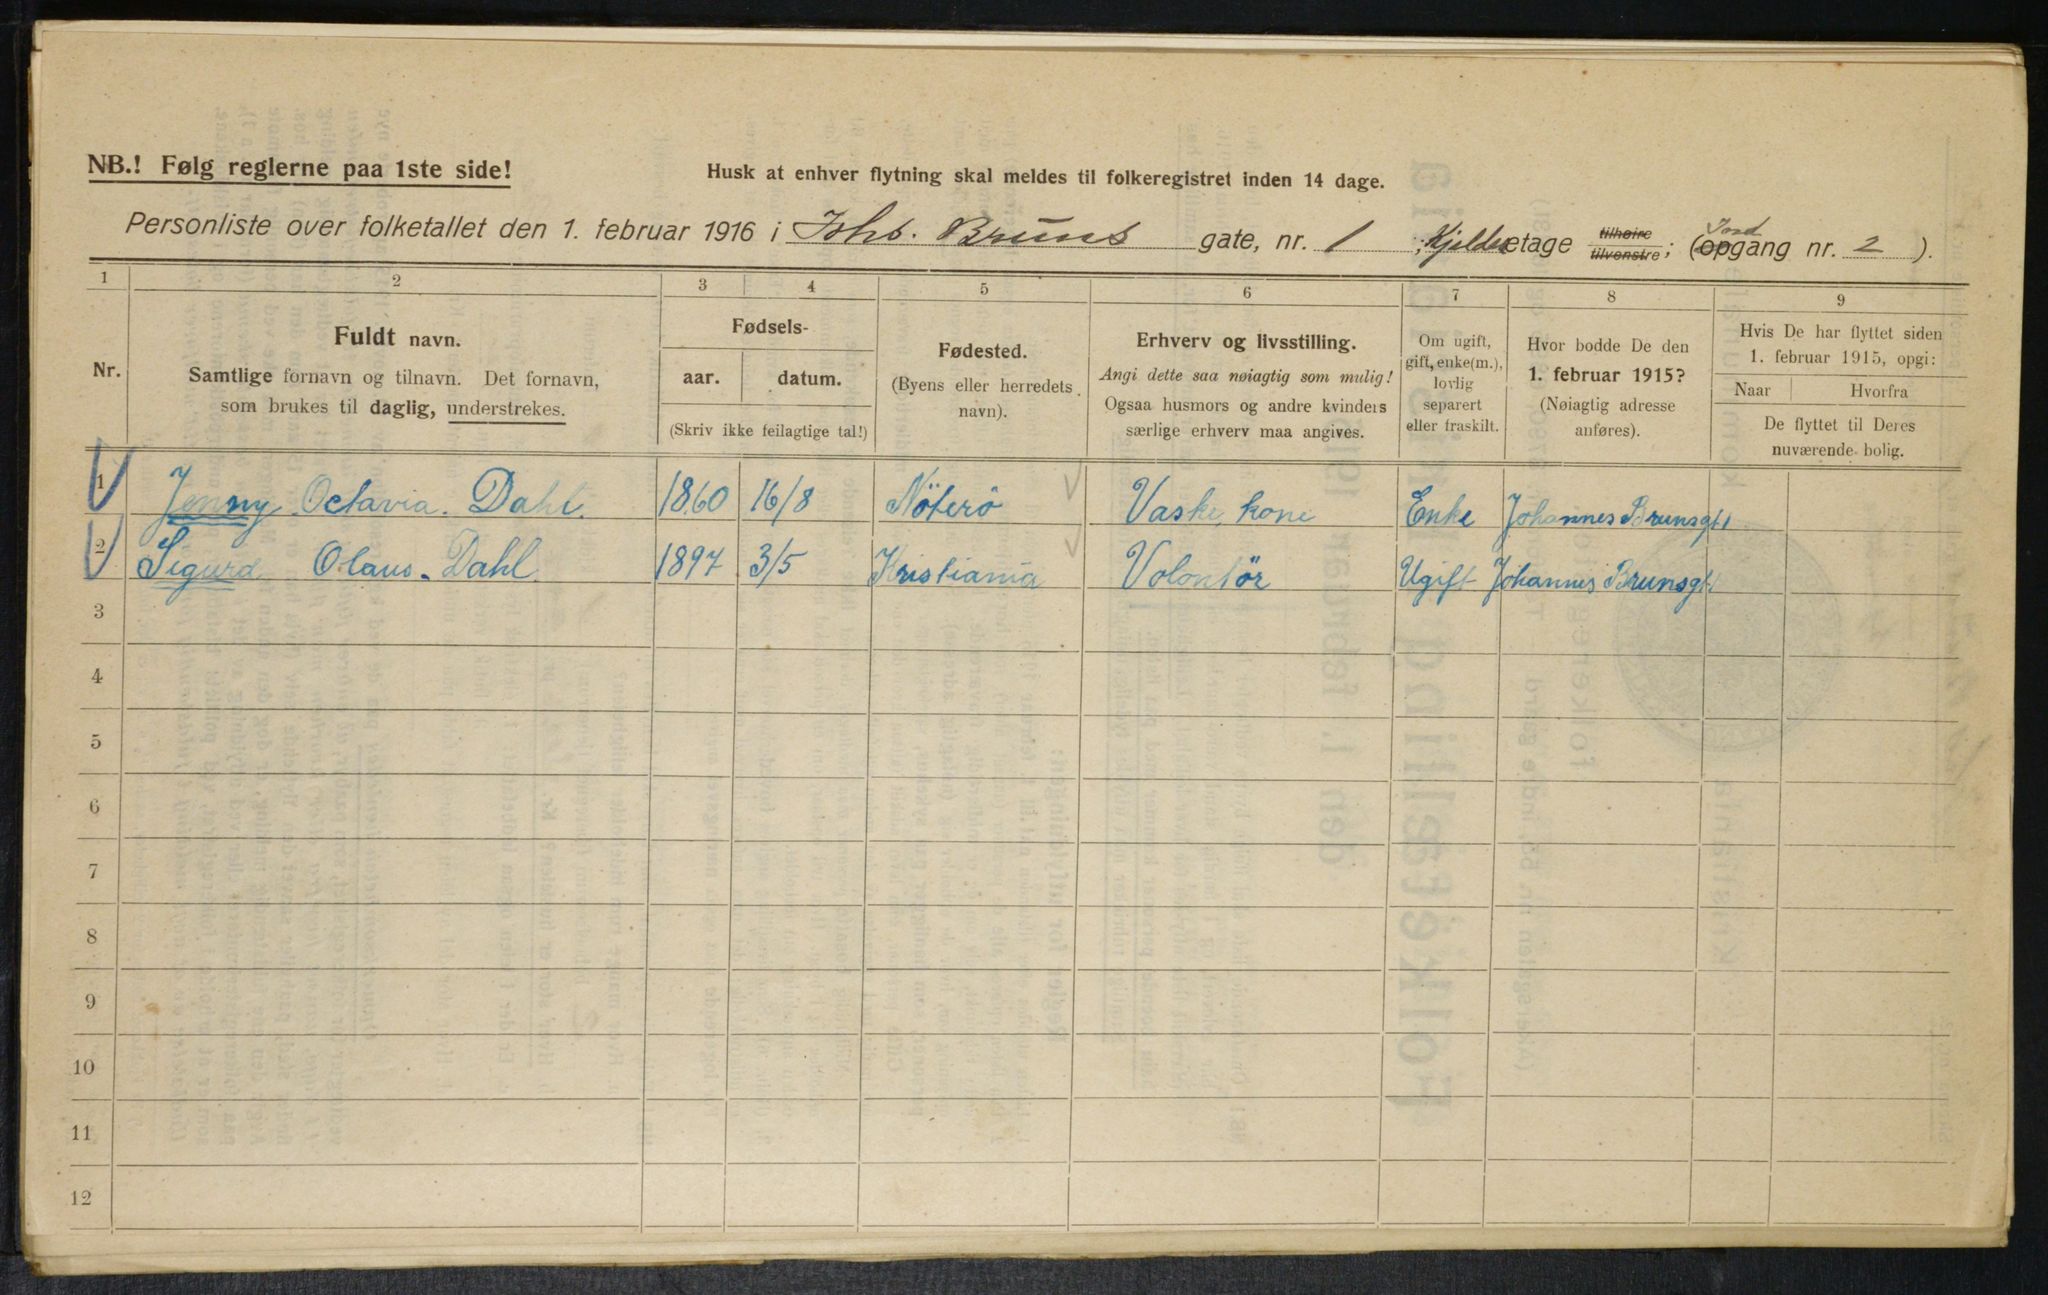 NB.! Følg reglerne paa 1ste side!
Husk at enhver flytning skal meldes til folkeregistret inden 14 dage.
Personliste over folketallet den 1. februar 1916 i Johs. Bruns gate, nr. 1 ; Kjelder etage tilhøire tilvenstre; (opgang nr. 2).
1 2 3 4 5 6 7 8 9
Nr.
Fuldt navn.
Samtlige fornavn og tilnavn. Det fornavn,
som brukes til daglig, understrekes.
Fødsels-
aar. datum.
(Skriv ikke feilagtige tal!)
Fødested.
(Byens eller herredets
navn).
Erhverv og livsstilling.
Angi dette saa nøiagtig som mulig!
Ogsaa husmors og andre kvinders
særlige erhverv maa angives.
Om ugift,
gift, enke(m.),
lovlig
separert
eller fraskilt.
Hvor bodde De den
1. februar 1915?
(Nøiagtig adresse
anføres).
Hvis De har flyttet siden
1. februar 1915, opgi:
Naar Hvorfra
De flyttet til Deres
nuværende bolig.
1 Jenny Octavia. Dahl. 1860 16/8 Nöterö Vaske kone Enke Johannes Brunsgt 1
2 Sigurd Olaus. Dahl 1897 3/5 Kristiania Volontör Ugift Johannes Brunsgt 1
3
4
5
6
7
8
9
10
11
12